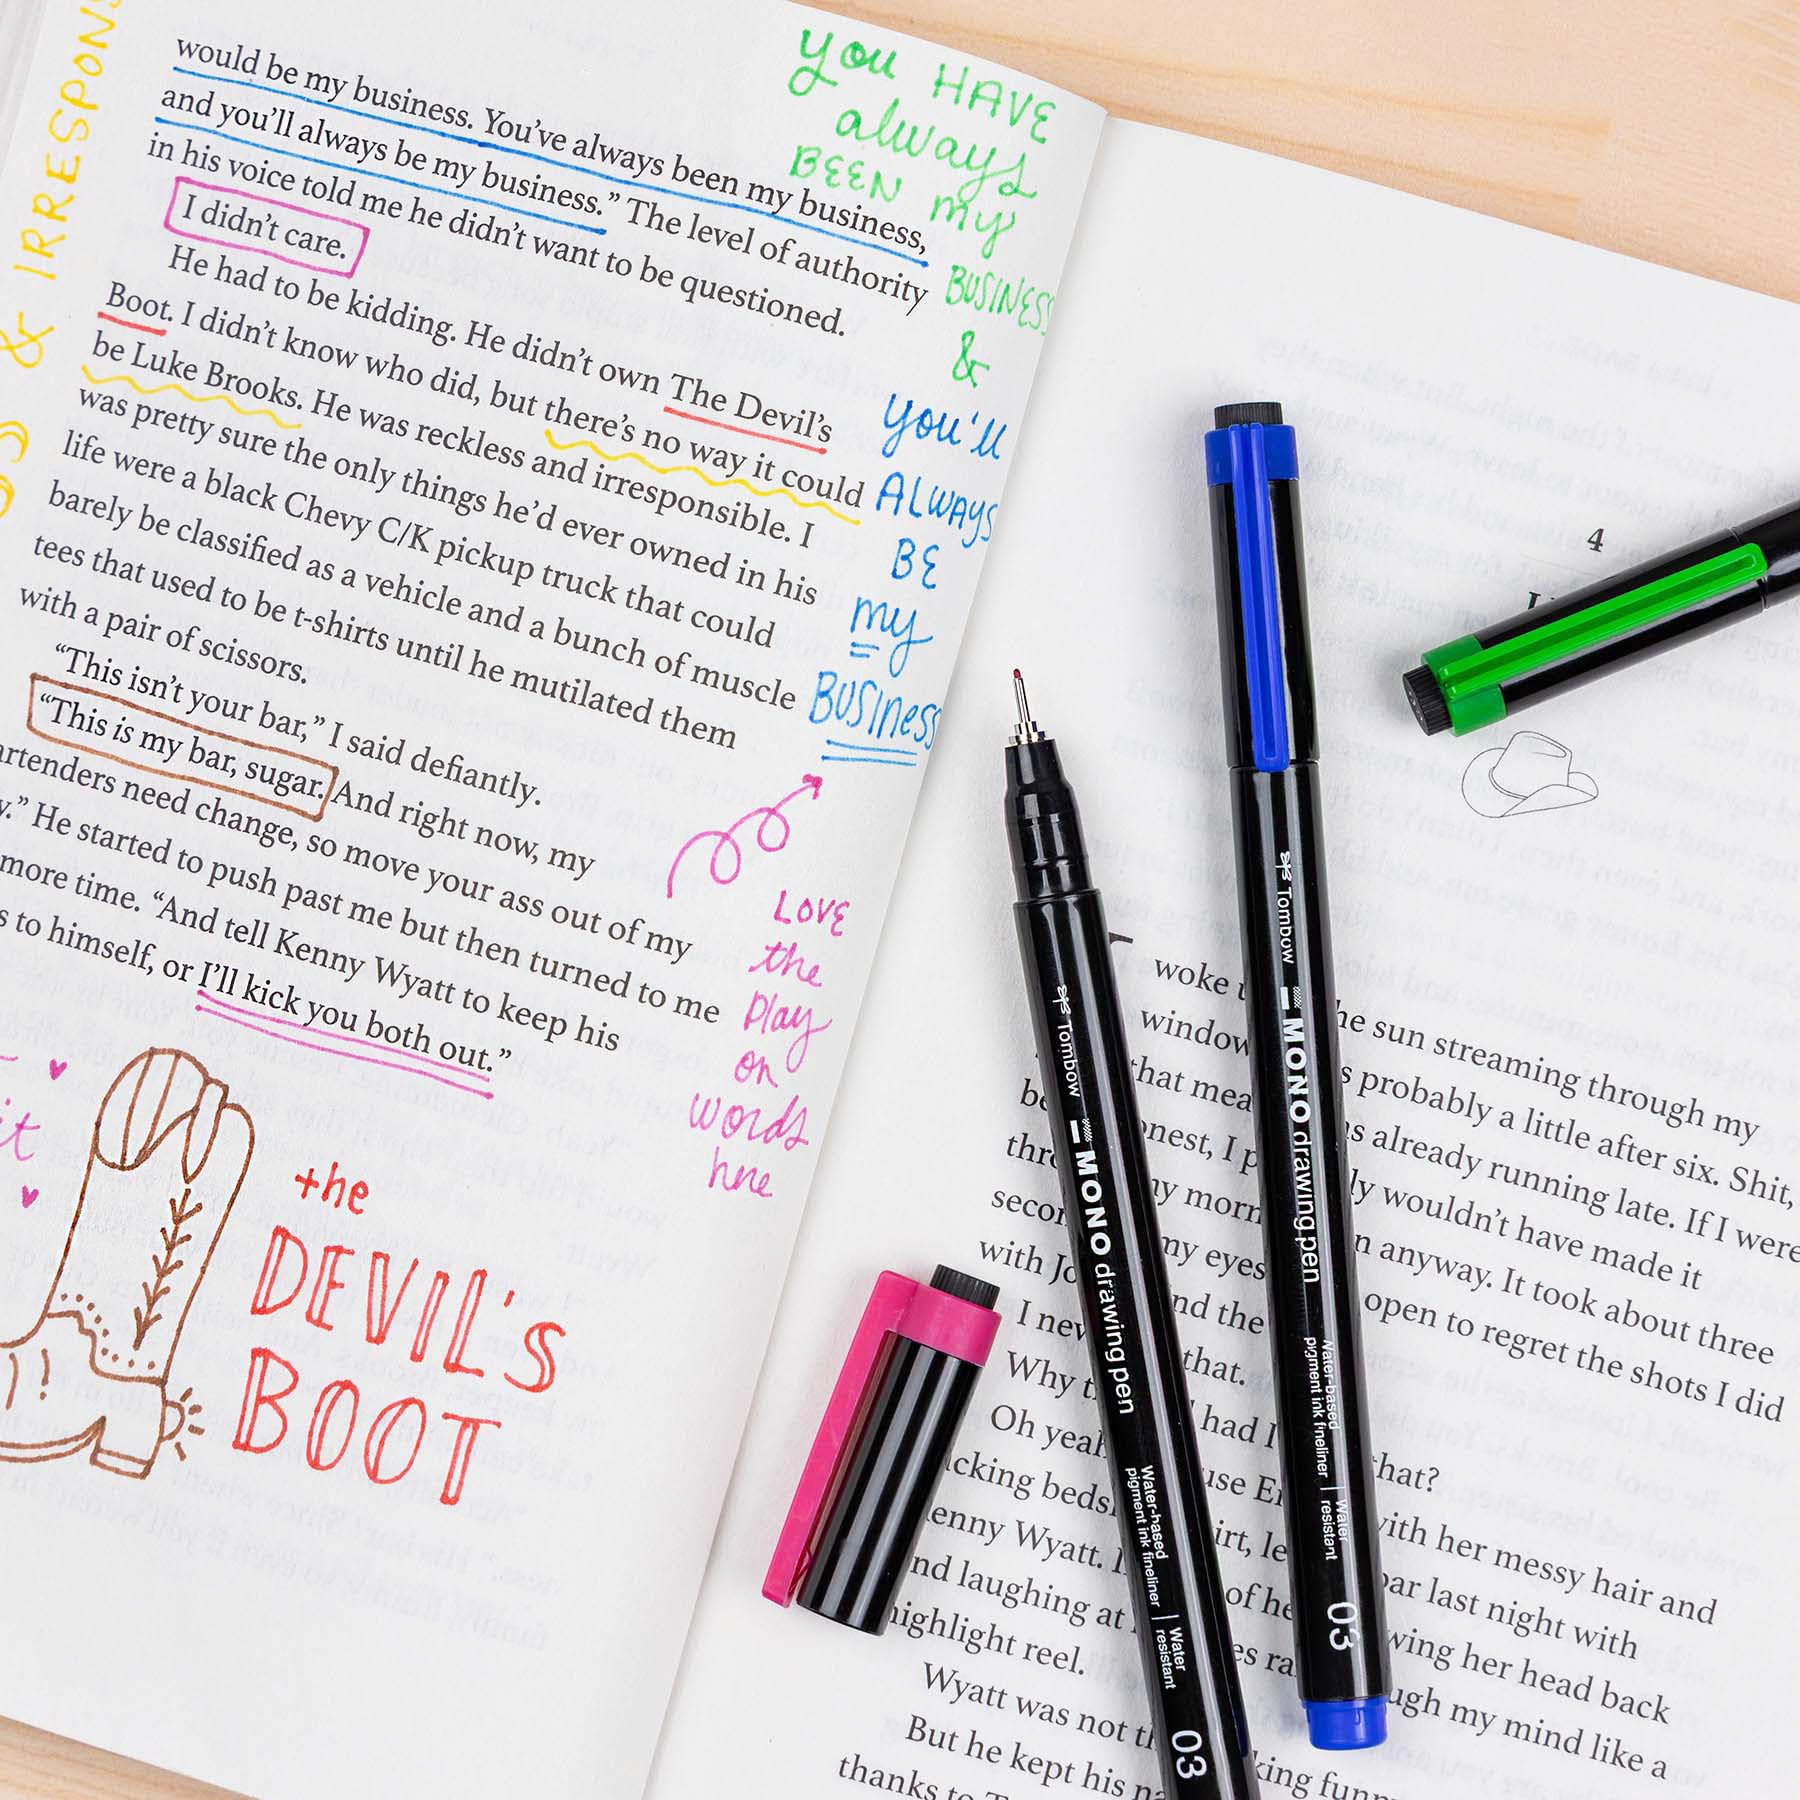 would be my business. You've always been my business,
and you'll always be my business." The level of authority
in his voice told me he didn't want to be questioned.
I didn't care.
He had to be kidding. He didn't own The Devil's
Boot. I didn't know who did, but there's no way it could
be Luke Brooks. He was reckless and irresponsible. I
was pretty sure the only things he'd ever owned in his
life were a black Chevy C/K pickup truck that could
barely be classified as a vehicle and a bunch of muscle
tees that used to be t-shirts until he mutilated them
with a pair of scissors.
"This isn't your bar," I said defiantly.
"This is my bar, sugar. And right now, my
artenders need change, so move your ass out of my
y." He started to push past me but then turned to me
more time. "And tell Kenny Wyatt to keep his
s to himself, or I'll kick you both out."
& IRRESPONS
you HAVE
always
BEEN my
BUSINESS
&
you'll
ALWAYS
BE
my
BUSINESS
LOVE
the
Play
on
words
here
it
the
DEVIL'S
BOOT
4
woke the sun streaming through my
window probably a little after six. Shit,
that mea s already running late. If I were
be onest, I p ly wouldn't have made it
thr my morn n anyway. It took about three
secon my eyes open to regret the shots I did
with Jo nd the
I nev that.
Why had I that?
Oh yeah use E with her messy hair and
cking beds irt, le bar last night with
enny Wyatt. of he wing her head back
nd laughing at es ra ugh my mind like a
highlight reel.
Wyatt was not th king funn
But he kept his na
thanks to
Tombow MONO drawing pen
Water-based
pigment ink fineliner
Water
resistant
03
Tombow MONO drawing pen
Water-based
pigment ink fineliner
Water
resistant
03